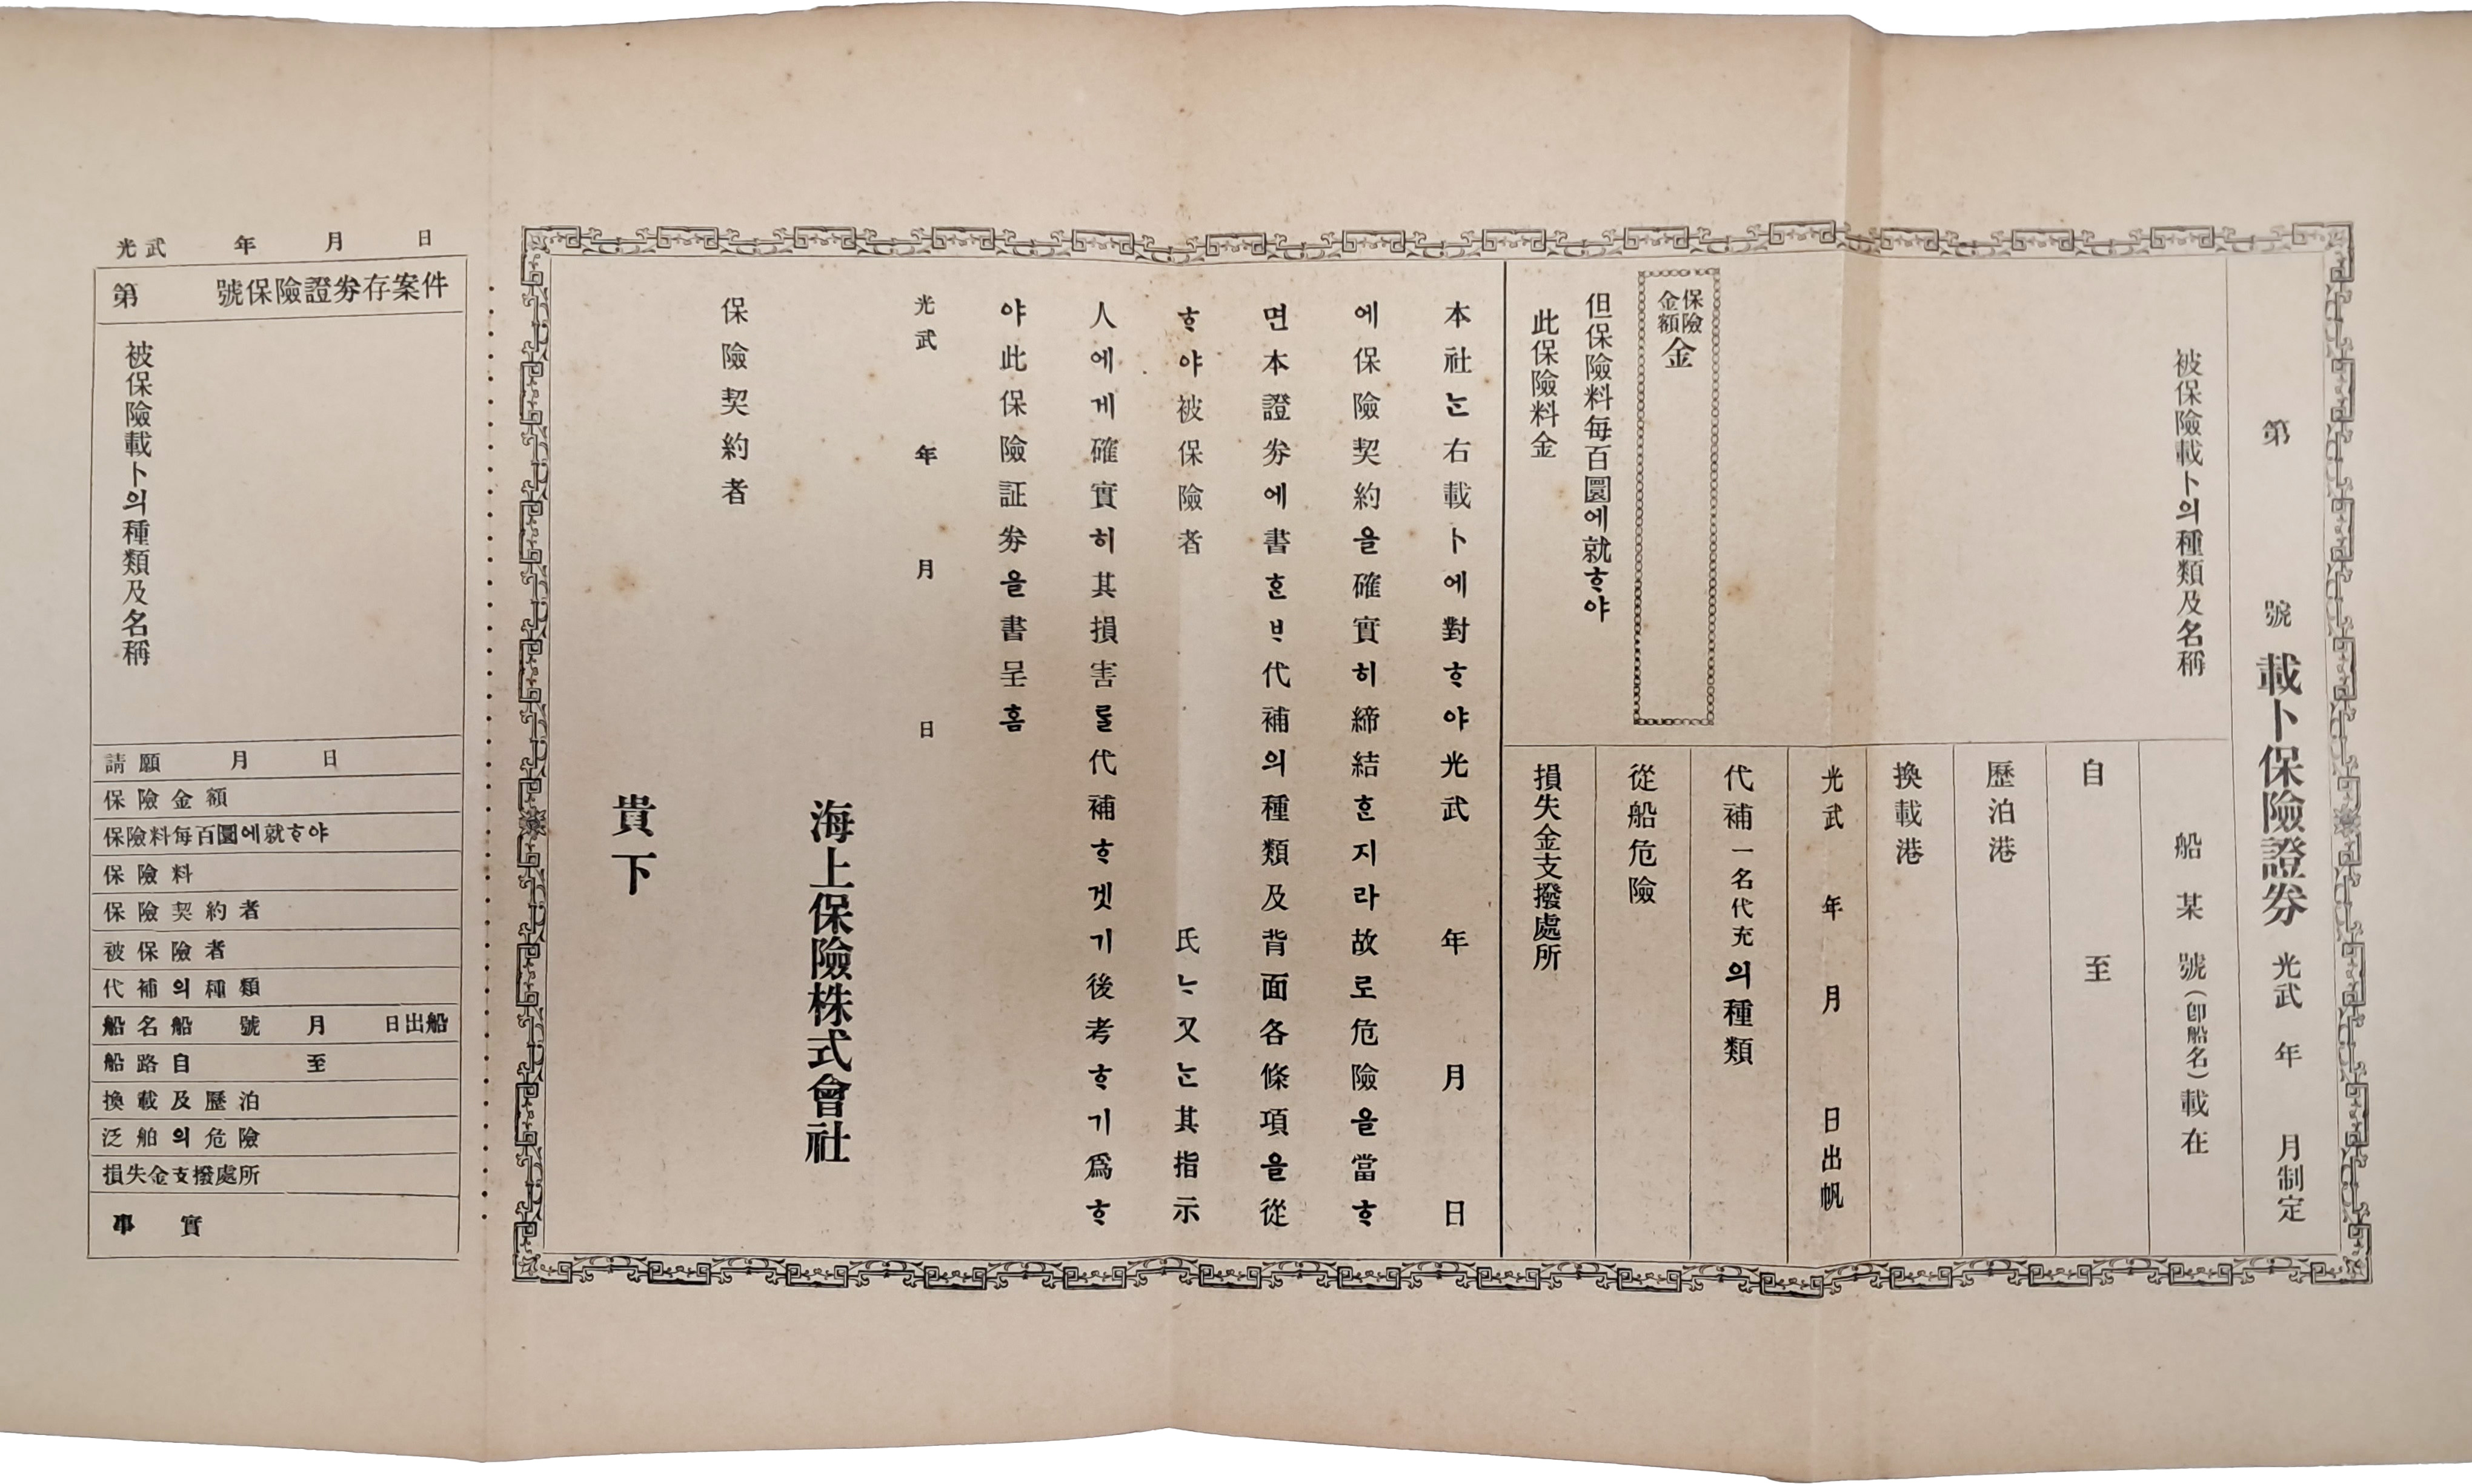 第 號 載卜保險證券 光武 年 月制定
被保險載卜의種類及名稱
船某號(卽船名)載在
自 至
歷泊港
換載港
光武 年 月 日出帆
代補一名代充의種類
從船危險
損失金支撥處所
保險金額金
但保險料每百圜에就ᄒᆞ야
此保險料金
本社ᄂᆞᆫ右載卜에對ᄒᆞ야光武 年 月 日
에保險契約을確實히締結ᄒᆞᆫ지라故로危險을當ᄒᆞ
면本證券에書ᄒᆞᆫᄇᆞ代補의種類及背面各條項을從
ᄒᆞ야被保險者 氏ᄂᆞ又ᄂᆞᆫ其指示
人에게確實히其損害를代補ᄒᆞ겟기後考ᄒᆞ기爲ᄒᆞ
야此保險証券을書呈홈
光武 年 月 日
海上保險株式會社
保險契約者
貴下
光武 年 月 日
第 號保險證券存案件
被保險載卜의種類及名稱
請願 月 日
保險金額
保險料每百圜에就ᄒᆞ야
保險料
保險契約者
被保險者
代補의種類
船名船 號 月 日出船
船路自 至
換載及歷泊
泛舶의危險
損失金支撥處所
事實